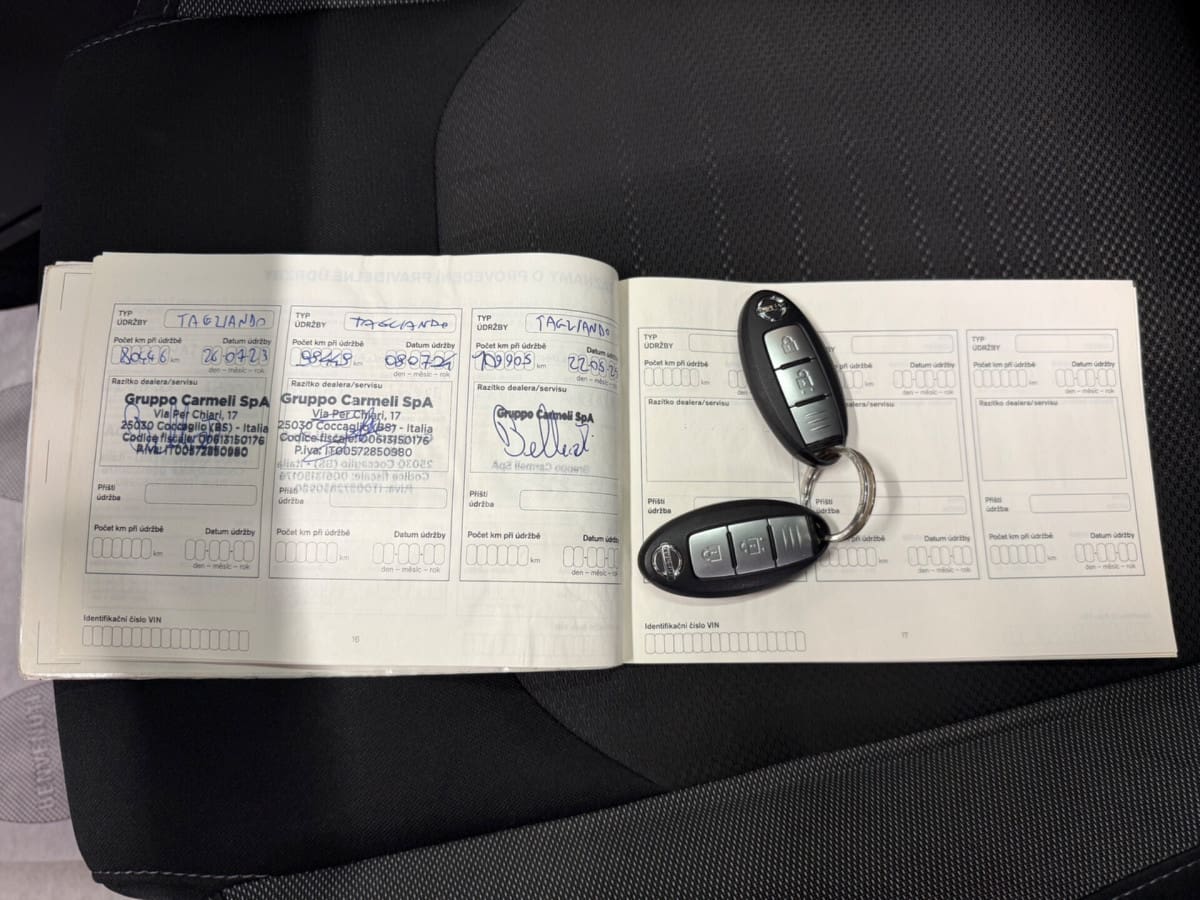 TYP
ÚDRŽBY
TAGLIANDO
Počet km při údržbě
Datum údržby
80446 km
26 07 23
den – měsíc – rok
Razítko dealera/servisu
Gruppo Carmeli SpA
Via Per Chiari, 17
25030 Coccaglio (BS) - Italia
Codice fiscale: 00613150176
P.iva: IT00572850980
Příští
údržba
Počet km při údržbě
Datum údržby
km
den – měsíc – rok
TYP
ÚDRŽBY
TAGLIANDO
Počet km při údržbě
Datum údržby
km
08 07 24
den – měsíc – rok
Razítko dealera/servisu
Gruppo Carmeli SpA
Via Per Chiari, 17
25030 Coccaglio (BS) - Italia
Codice fiscale: 00613150176
P.iva: IT00572850980
Příští
údržba
Počet km při údržbě
Datum údržby
km
den – měsíc – rok
TYP
ÚDRŽBY
TAGLIANDO
Počet km při údržbě
Datum údržby
109905 km
den – měsíc –
Razítko dealera/servisu
Gruppo Carmeli SpA
Příští
údržba
Počet km při údržbě
Datum údržby
km
den – měsíc – rok
Identifikační číslo VIN
16
TYP
ÚDRŽBY
Počet km při údržbě
km
Razítko dealera/servisu
Příští
údržba
Datum údržby
den – měsíc – rok
Příští
údržba
při údržbě
Datum údržby
km
den – měsíc – rok
TYP
ÚDRŽBY
Počet km při údržbě
Datum údržby
km
den – měsíc – rok
Razítko dealera/servisu
Příští
údržba
Počet km při údržbě
Datum údržby
km
den – měsíc – rok
Identifikační číslo VIN
17
NISSAN
NISSAN
BENVENUTI